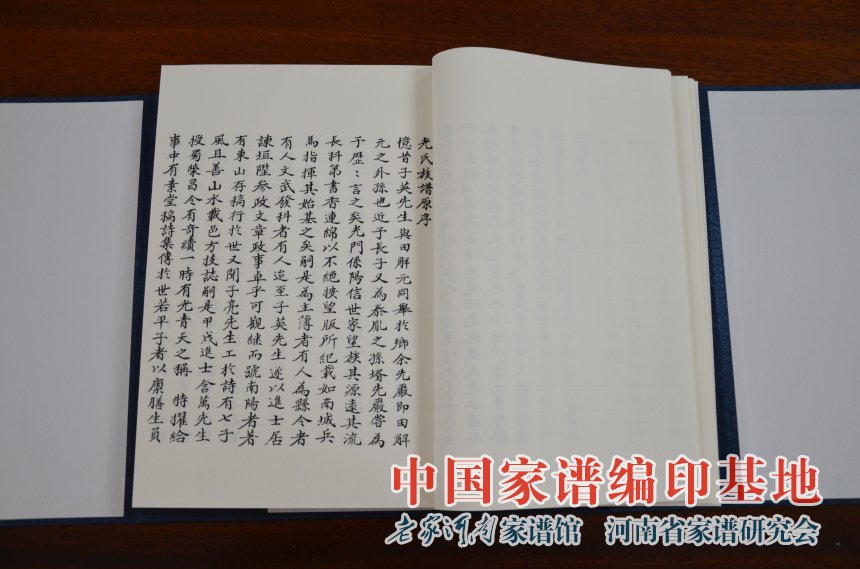 光氏族譜原序
憶昔子英先生與田解元同舉於鄉余先嚴即田解
元之外孫也近予長子又為泰胤之孫壻先嚴嘗為
予歷歷言之矣光門係陽信世家望族其源遠其流
長科第書香連綿以不絕按望版所紀載如南城兵
馬指揮其始基之矣嗣是為主簿者有人為縣令者
有人文武發科者有人迨至子英先生遂以進士居
諫垣陞參政文章政事卓乎可觀繼而號南陽者著
有東山存稿行於世又聞子亮先生工於詩有七子
風且善山水載邑方技誌嗣是甲戌進士含萬先生
授蜀榮昌令有奇績一時有光青天之稱 特擢給
事中有素堂稿詩集傳於世若平子者以廩膳生員
中国家谱编印基地
老家河南家谱馆 河南省家谱研究会